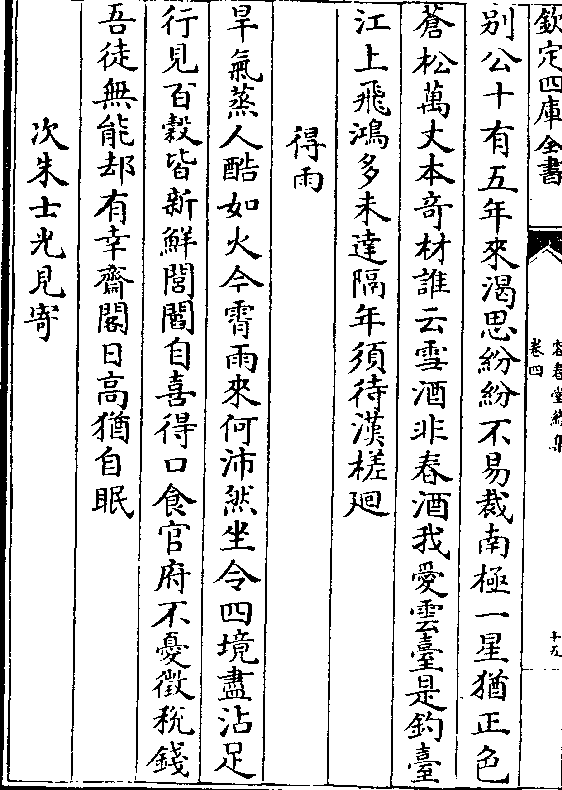 欽定四庫全書
容春堂續集
卷四
十九
别公十有五年來渴思紛紛不易裁南極一星猶正色
蒼松萬丈本竒材誰云雪酒非春酒我愛雲臺是釣臺
江上飛鴻多未達隔年須待漢槎廻
得雨
旱氣蒸人酷如火今霄雨來何沛然坐令四境盡沾足
行見百穀皆新鮮閭閻自喜得口食官府不憂徵税錢
吾徒無能却有幸齋閣日高猶自眠
次朱士光見寄